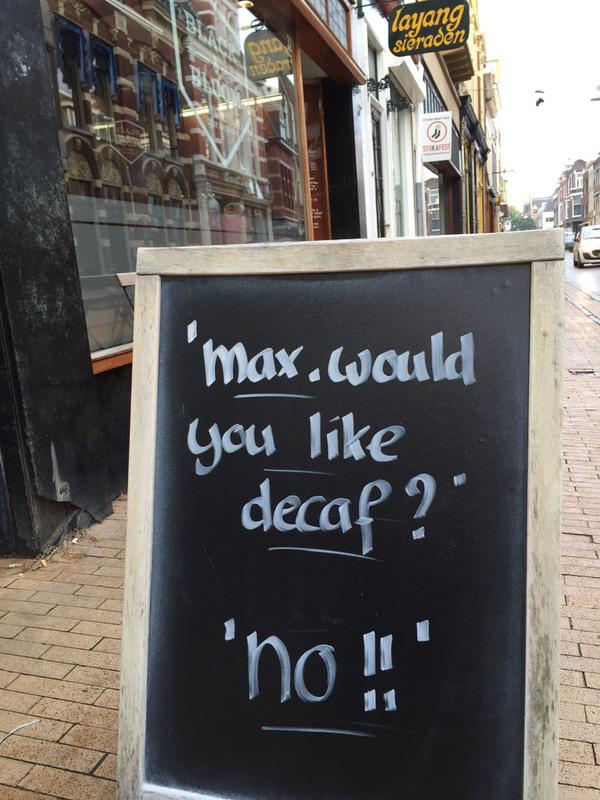 BLACK
BLOOM
layang
sieraden
STUKAFEST
'max. would
you like
decaf?'
'no!!'